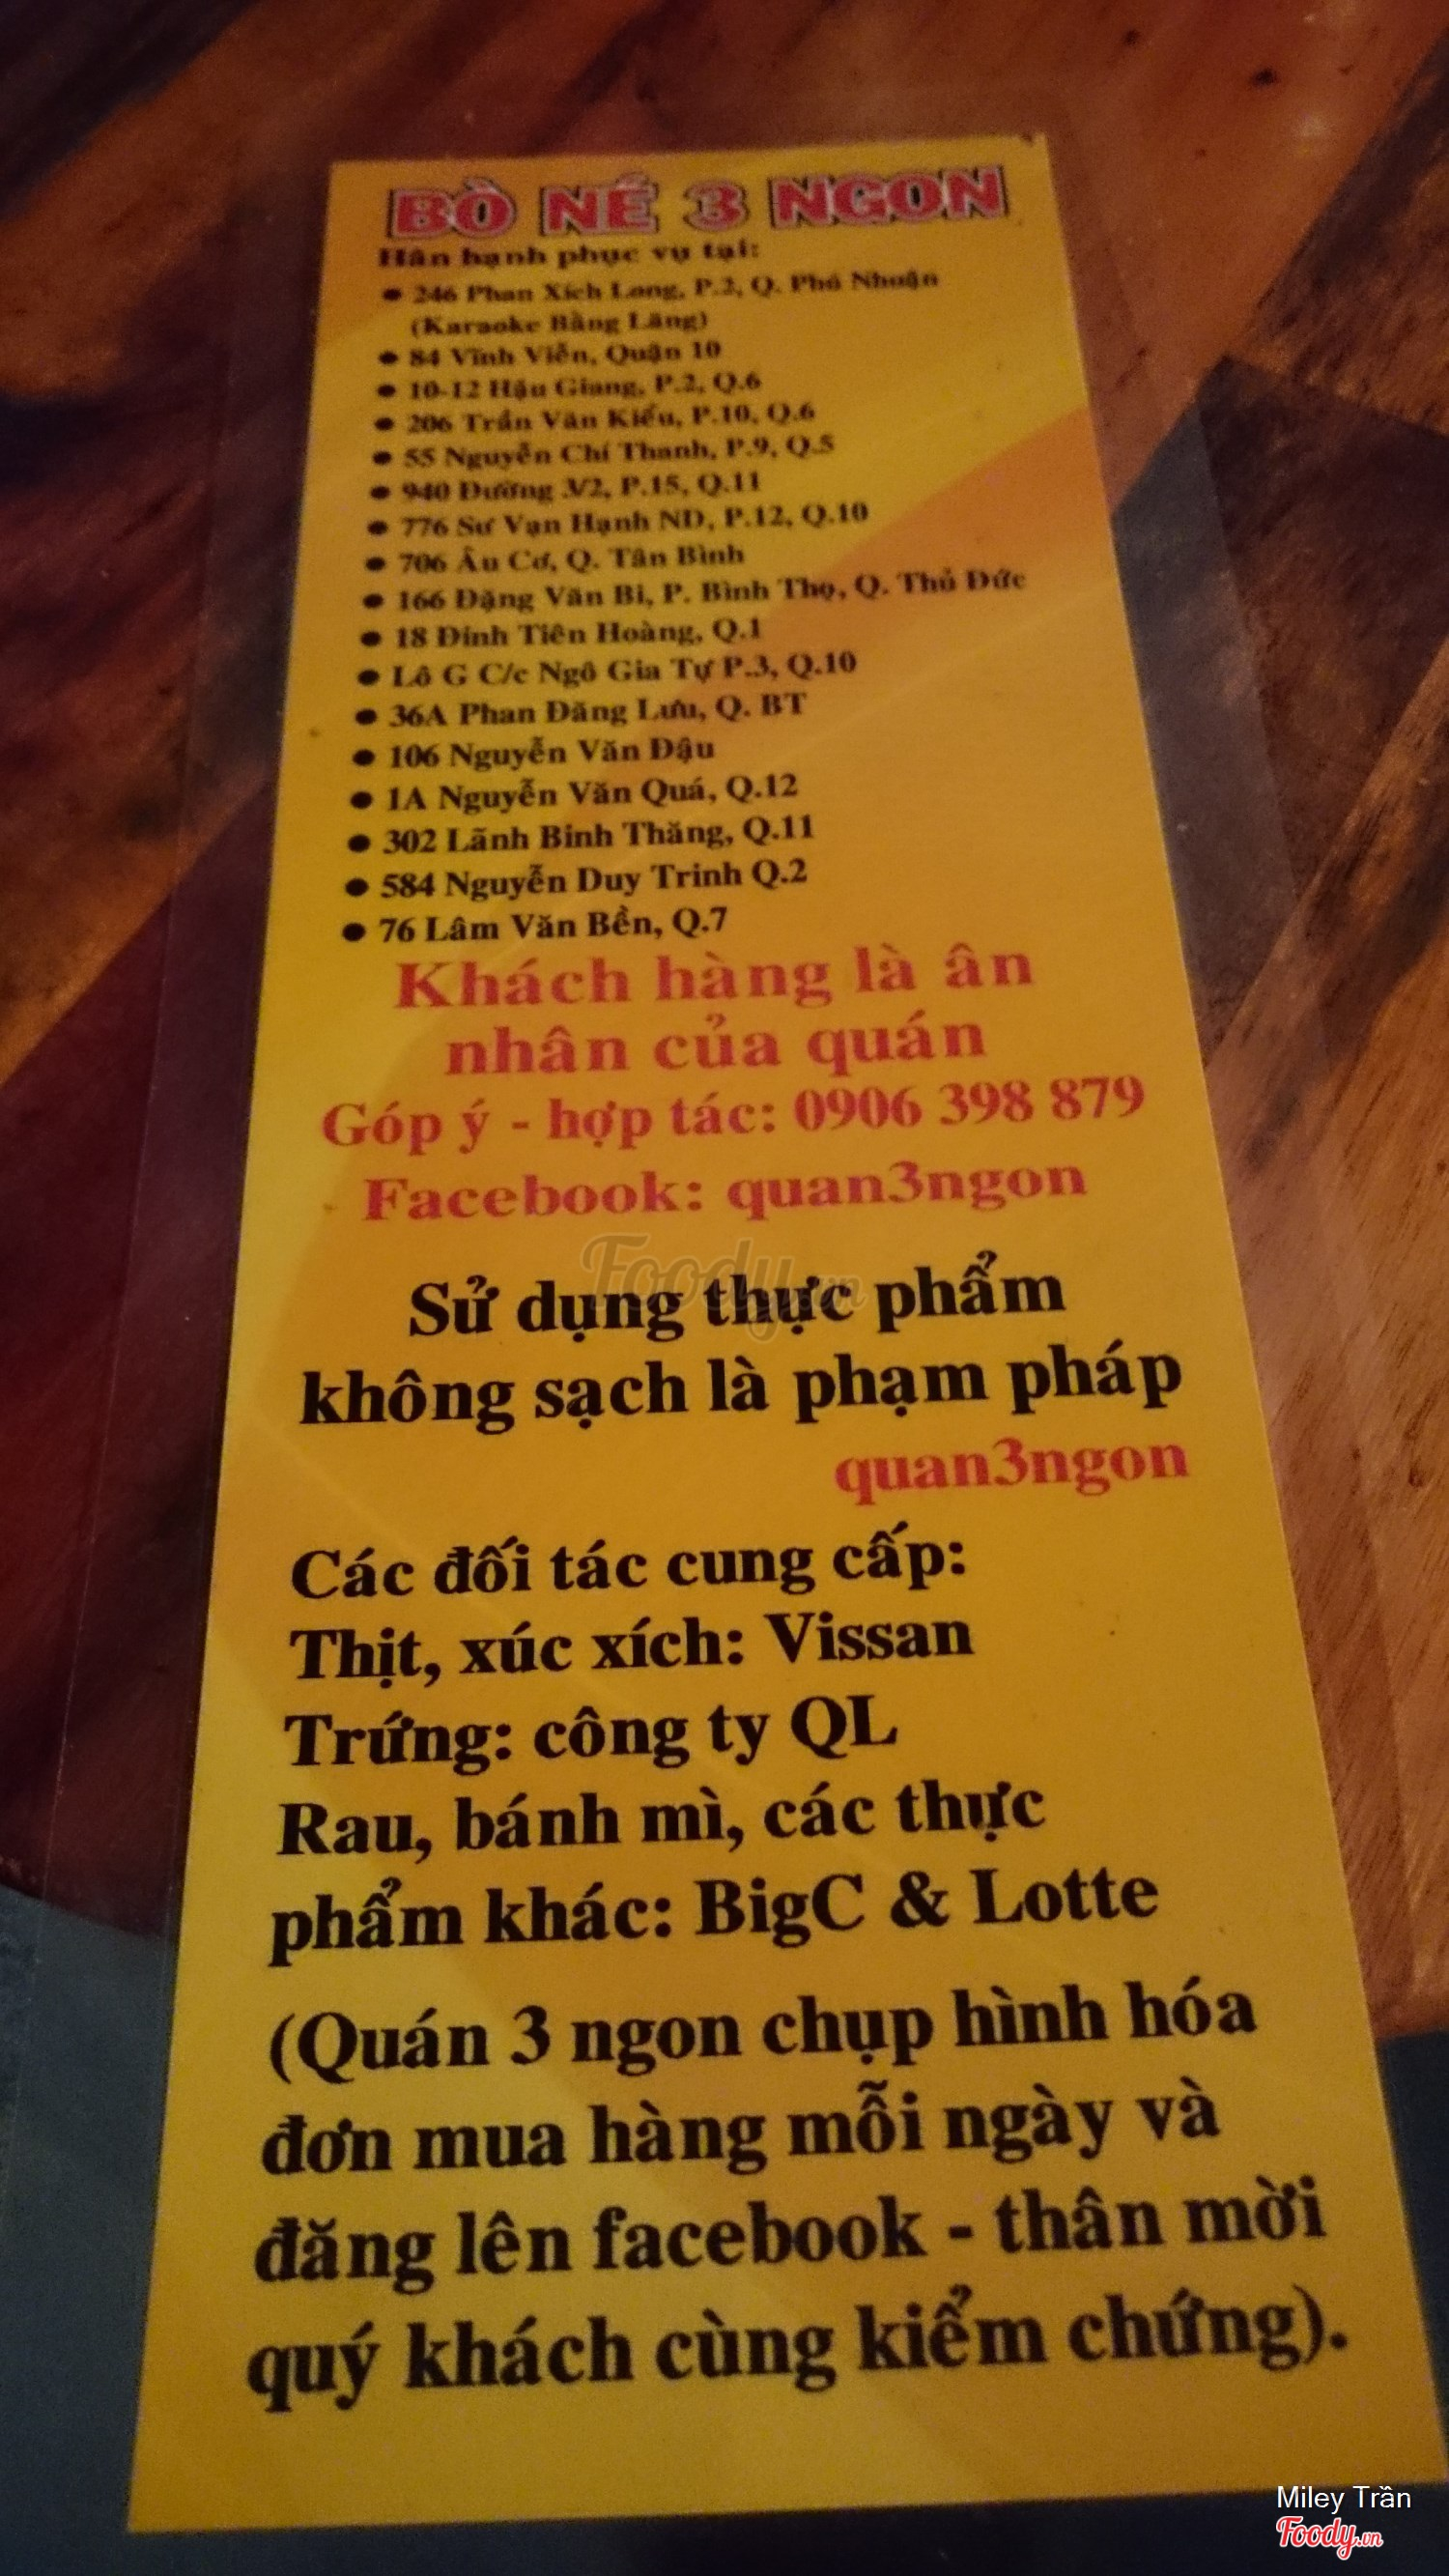 BÒ NÉ 3 NGON
Hân hạnh phục vụ tại:
● 246 Phan Xích Long, P.2, Q. Phú Nhuận
(Karaoke Bằng Lăng)
● 84 Vĩnh Viễn, Quận 10
● 10-12 Hậu Giang, P.2, Q.6
● 206 Trần Văn Kiểu, P.10, Q.6
● 55 Nguyễn Chí Thanh, P.9, Q.5
● 940 Đường 3/2, P.15, Q.11
● 776 Sư Vạn Hạnh ND, P.12, Q.10
● 706 Âu Cơ, Q. Tân Bình
● 166 Đặng Văn Bi, P. Bình Thọ, Q. Thủ Đức
● 18 Đinh Tiên Hoàng, Q.1
● Lô G C/c Ngô Gia Tự P.3, Q.10
● 36A Phan Đăng Lưu, Q. BT
● 106 Nguyễn Văn Đậu
● 1A Nguyễn Văn Quá, Q.12
● 302 Lãnh Binh Thăng, Q.11
● 584 Nguyễn Duy Trinh Q.2
● 76 Lâm Văn Bền, Q.7
Khách hàng là ân
nhân của quán
Góp ý - hợp tác: 0906 398 879
Facebook: quan3ngon
Foody.vn
Sử dụng thực phẩm
không sạch là phạm pháp
quan3ngon
Các đối tác cung cấp:
Thịt, xúc xích: Vissan
Trứng: công ty QL
Rau, bánh mì, các thực
phẩm khác: BigC & Lotte
(Quán 3 ngon chụp hình hóa
đơn mua hàng mỗi ngày và
đăng lên facebook - thân mời
quý khách cùng kiểm chứng).
Miley Trần
Foody.vn